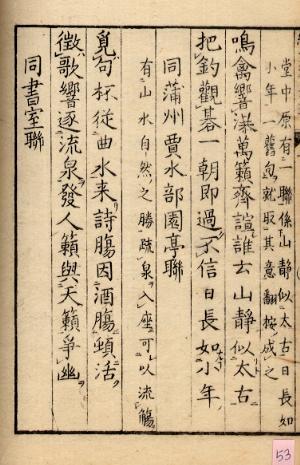 堂中原有一聯係山靜似太古日長如
小年一舊包就取其意翻按成之
鳴禽響漾萬籟齊諠誰云山靜似太古
把釣觀碁一朝即過不信日長如小年
同蒲州賈水部園亭聯
有山水自然之勝疏泉入座可以流觴
覓句杯從曲水来詩膓因酒膓頓活
徴歌響逐流泉發人籟與天籟爭幽
同書室聯
53